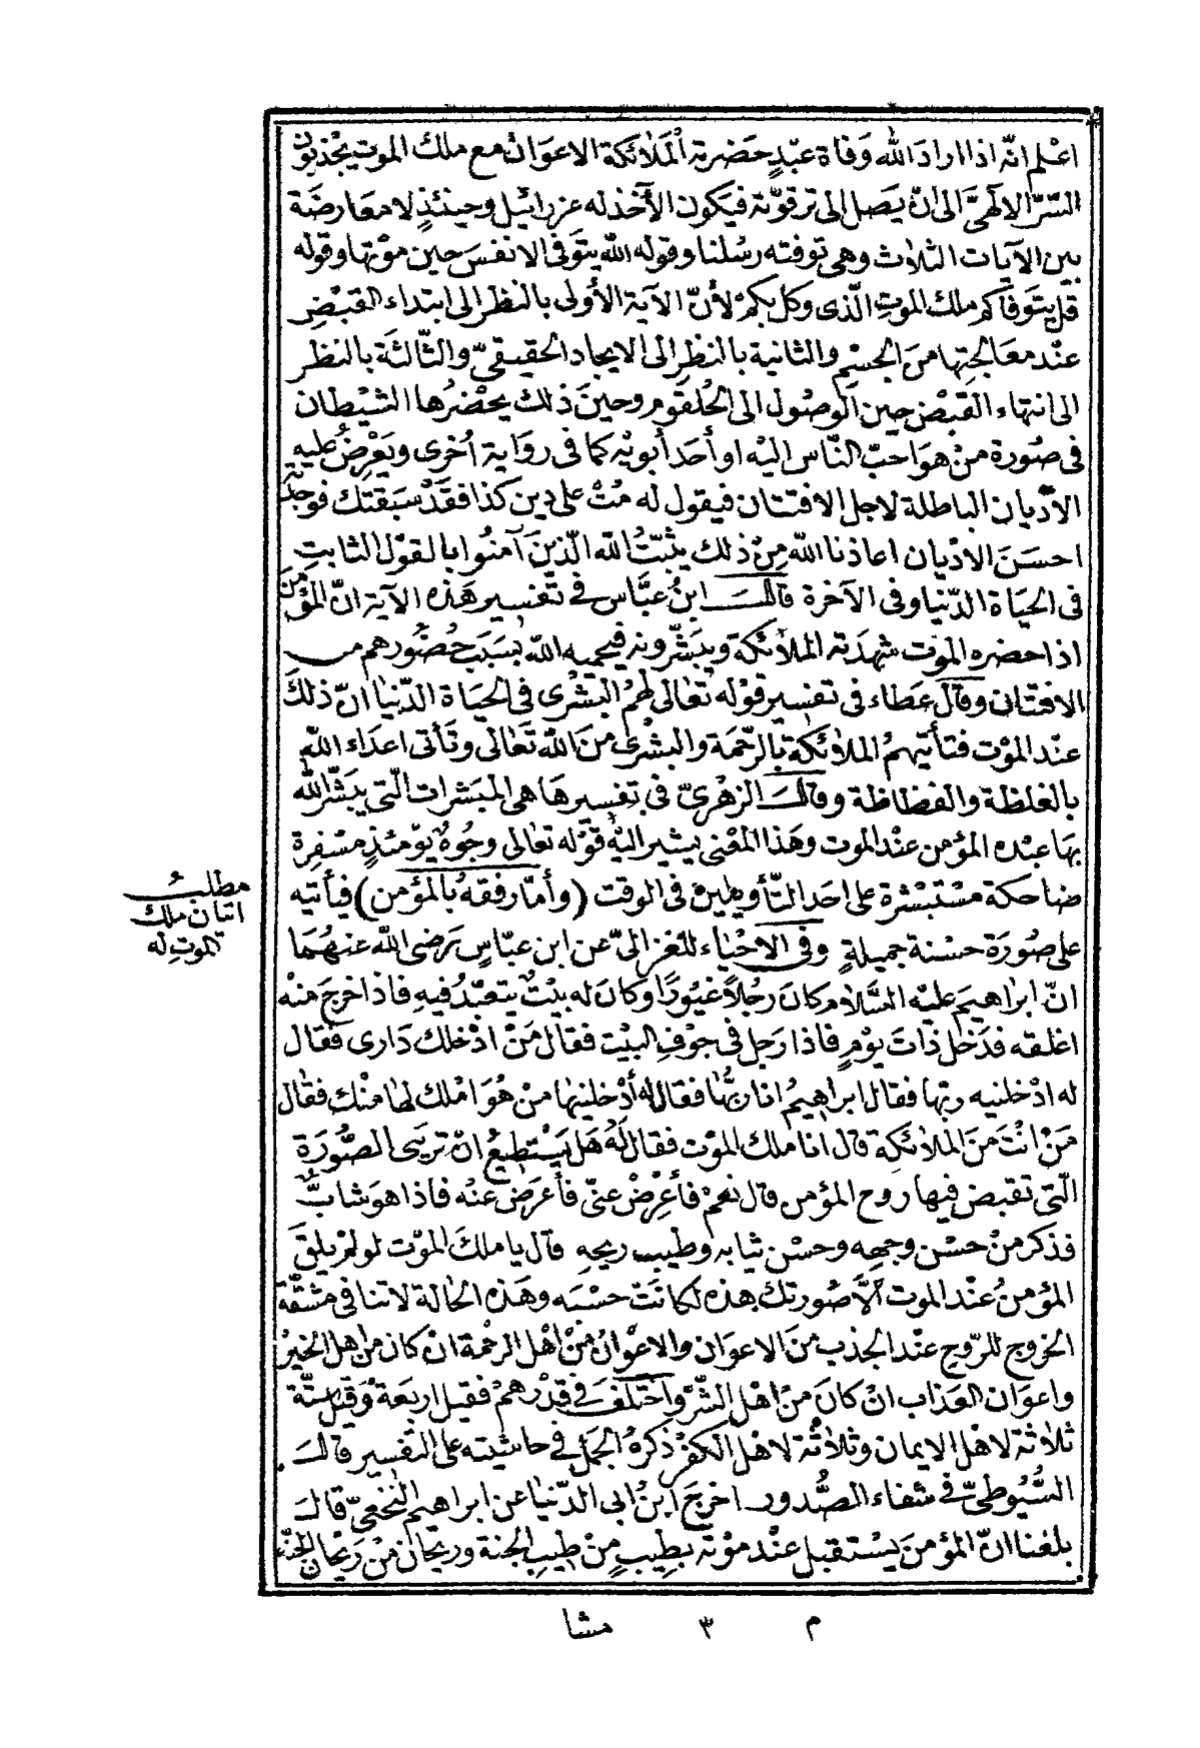 اعْلم انّه اذا اراد الله وَفاة عبْدٍ حَضرته اْلمَلائكة الاعوَان مع ملك الموت يجْذبون
السّرّ الالٰهىّ الى انْ يَصل الى ترقوّته فيَكون الآخذ له عزرائيل وحينئذٍ لا معَارضَة
بين الآيات الثلاث وهى توفته رسُلنا وقوله الله يتوَفى الانفسَ حين موْتها وقوله
قل يتوَفاكم ملك الموتِ الّذى وكل بكمْ لأنّ الآية الأولى بالنظر الى ابتداء القبْضِ
عنْد معَالجتِها منَ الجسْمِ والثانية بالنظرِ الى الايجاد الحقيقىّ والثّالثَة بالنظر
الى انتهاء القبْض حين الوصُول الى الحُلقومِ وحينَ ذلك يحْضرُها الشيْطان
فى صُورة منْ هوَ احبّ النّاس اليْه او أحَد أبويْه كما فى روَاية اُخرى ويَعْرضُ عليه
الادْيان الباطلة لاجل الافتتان فيقول له مُتْ على دين كذا فقَدْ سَبَقتك فوجدته
احسَنَ الادْيان اعاذنا الله مِنْ ذلك يثبّتُ الله الّذينَ آمنُوا بالقوْل الثابتِ
فى الحيَاة الدّنيا وفى الآخرة قالَ ابنُ عبّاس فى تفسير هَذه الآية انّ المؤمن
اذا حضره الموْت شهدَته الملائكة ويبَشّرونه فيحميه الله بسَبَب حُضورهم من
الافتتان وقالَ عَطاء فى تفسير قوْله تعَالى لهمُ البُشْرى فى الحيَاة الدّنيا انّ ذلكَ
عنْد الموْت فتأتيهمُ الملائكة بالرّحمَة والبشْرى منَ الله تَعَالى وتَأتى اعدَاء الله
بالغلظة والفظاظة وقالَ الزهْرىّ فى تفسيرهَا هى المبَشرات الّتى يبَشّر الله
بهَا عبْده المؤمن عنْد الموت وهَذا المعْنى يشير اليْه قوْله تعالى وجُوهٌ يوْمئذٍ مسْفِرة
ضاحكة مسْتبْشرة على احَد التّأويلين فى الوقت (وأمّا رفقهُ بالمؤمن) فيأتيه
على صُورَة حسْنة جميلةٍ وفى الاحْياء للغزالىّ عن ابن عبّاسٍ رَضى الله عنهُمَا
انّ ابراهيمَ عليْه السَّلام كانَ رجُلاً غيُورًا وكانَ له بيْتٌ يتعبّدُ فيهِ فاذا خرجَ منْه
اغلقه فدَخلَ ذاتَ يوْمٍ فاذا رَجل فى جوْفِ البيْت فقالَ مَنْ ادْخلك دَارى فقال
له ادْخلنيه ربّها فقال ابراهيمُ انا ربُّها فقال له أدْخلنيها منْ هُوَ امْلك لها منْك فقال
مَنْ انْتَ منَ الملائكة قال انا ملك الموْت فقال لهُ هَل يَسْتَطيعُ انْ تريَنى الصُّورَة
الّتى تقبض فيها روح المؤمن قال نعمْ فأعْرضْ عنّى فأعَرض عنْه فاذا هوَ شابٌّ
فذكر منْ حسْن وجههِ وحسْن ثيابه وطيب ريحهِ قال يا ملكَ الموْت لو لمْ يلقَ
المؤمنُ عنْد الموت الاّ صُورتك هذه لكانَتْ حسْبَه وهَذه الحالة لا تنافى مشقّة
الخروج للرّوح عنْد الجذب منَ الاعوَان والاعْوانُ منْ اهْل الرحْمة انْ كان من اهل الخيْرُ
واعوَان العَذاب انْ كانَ منْ اهْل الشّرّ واختلفَ فى قدْرهمْ فقيل اربَعَة وَقيل ستّة
ثلاثة لاهْل الايمان وثلاثة لاهْل الكفْر ذكرهُ الجمَل فى حاشيته على التفسير قالَ
السُّيُوطىّ فى شفاء الصُّدور اخرجَ ابنُ ابى الدّنيا عن ابراهيم النخعىّ قالَ
بلغنا انّ المؤمنَ يسْتقبل عنْد موْته بطيبٍ منْ طيب الجنة وريحان منْ ريحان الجنّة
مطلب
اتيان ملك
الموت له
م ٣ مشا